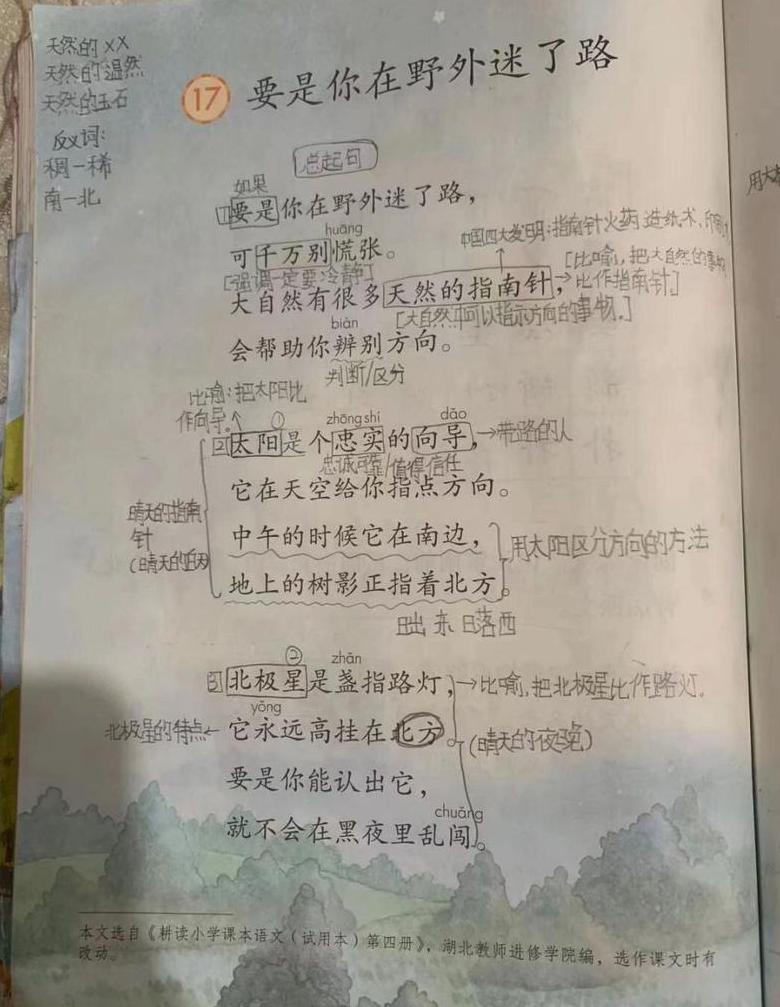 天然的xx
天然的温然
天然的玉石
反义词:
稠一稀
南一北
17 要是你在野外迷了路
总起句
如果
①要是你在野外迷了路，
huāng
可千万别慌张。
[强调一定要冷静]
中国四大发明:指南针火药造纸术,
[比喻,把大自然的事物
大自然有很多天然的指南针，→比作指南针]
[大自然中可以指示方向的事物.]
biàn
会帮助你辨别方向。
判断/区分
比喻:把太阳比
作向导.↑
① zhōng shí dǎo
②太阳是个忠实的向导，→带路的人
忠诚可靠/值得信任
它在天空给你指点方向。
晴天的指南
针
(晴天的白天)
中午的时候它在南边，
用太阳区分方向的方法
地上的树影正指着北方。
日出东日落西
② zhǎn
③北极星是盏指路灯，→比喻,把北极星比作路灯.
yǒng
北极星的特点← 它永远高挂在北方。
(晴天的夜晚)
要是你能认出它，
chuǎng
就不会在黑夜里乱闯。
本文选自《耕读小学课本语文（试用本）第四册》，湖北教师进修学院编，选作课文时有
改动。
用太